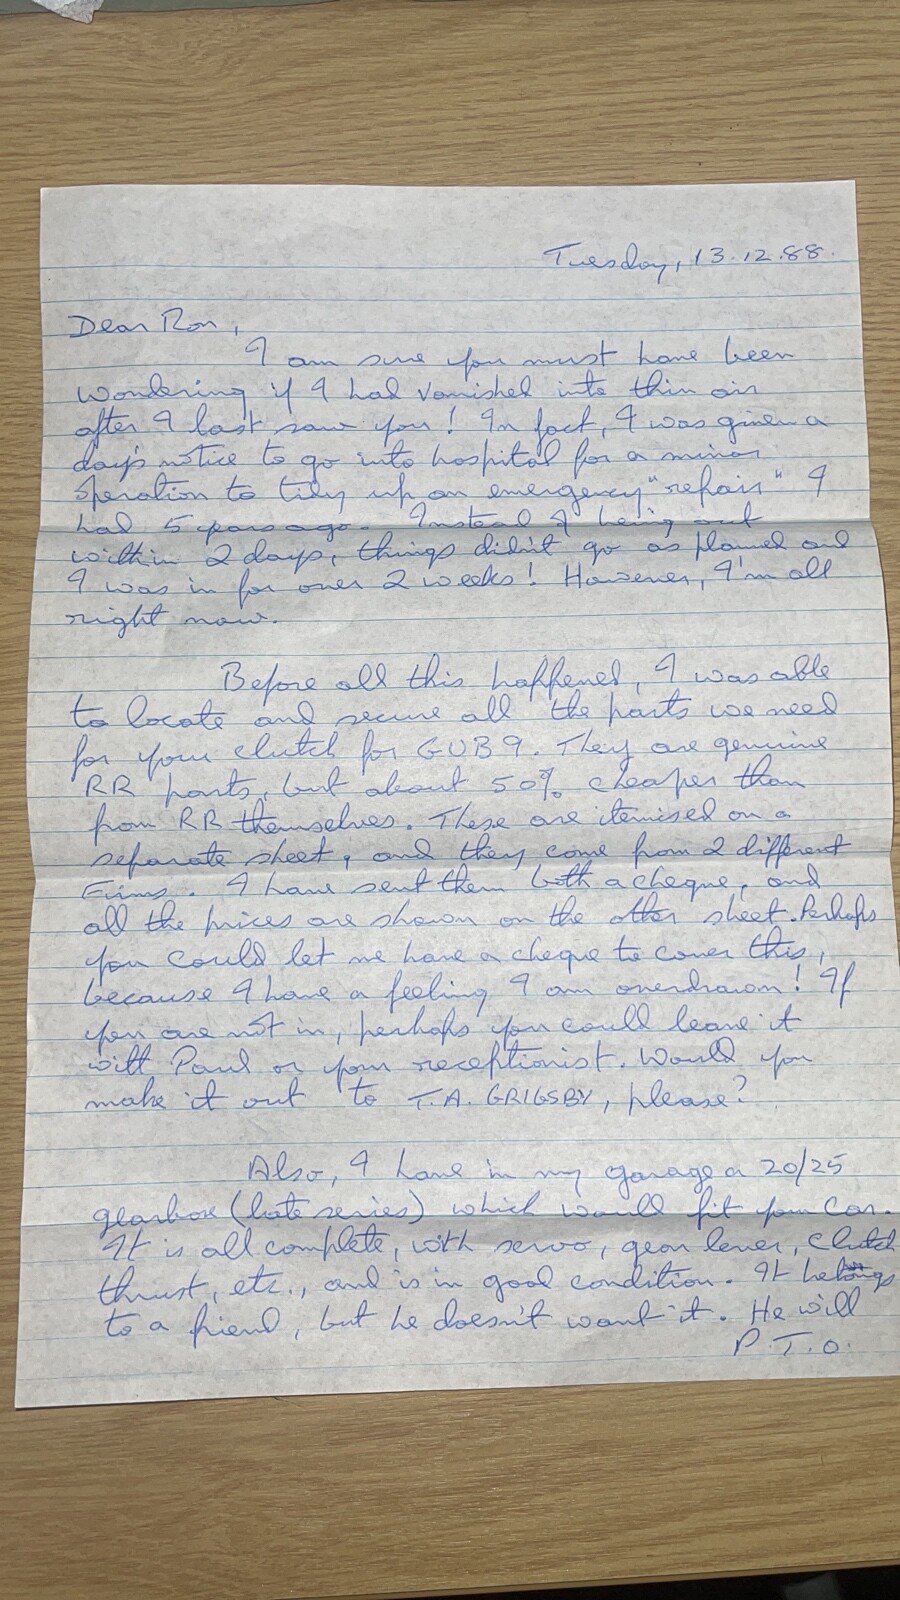 Tuesday, 13.12.88.
Dear Ron,
I am sure you must have been
wondering if I had vanished into thin air
after I last saw you! In fact, I was given a
day's notice to go into hospital for a minor
operation to tidy up an emergency "repair" I
had 5 years ago. Instead of being out
within 2 days, things didn't go as planned and
I was in for over 2 weeks! However, I'm all
right now.
Before all this happened, I was able
to locate and secure all the parts we need
for your clutch for GUB9. They are genuine
RR parts, but about 50% cheaper than
from RR themselves. These are itemised on a
separate sheet, and they come from 2 different
Firms. I have sent them both a cheque, and
all the prices are shown on the other sheet. Perhaps
you could let me have a cheque to cover this,
because I have a feeling I am overdrawn! If
you are not in, perhaps you could leave it
with Paul or your receptionist. Would you
make it out to T.A. GRIGSBY, please?
Also, I have in my garage a 20/25
gearbox (late series) which would fit your car.
It is all complete, with servo, gear lever, clutch
thrust, etc., and is in good condition. It belongs
to a friend, but he doesn't want it. He will
P.T.O.